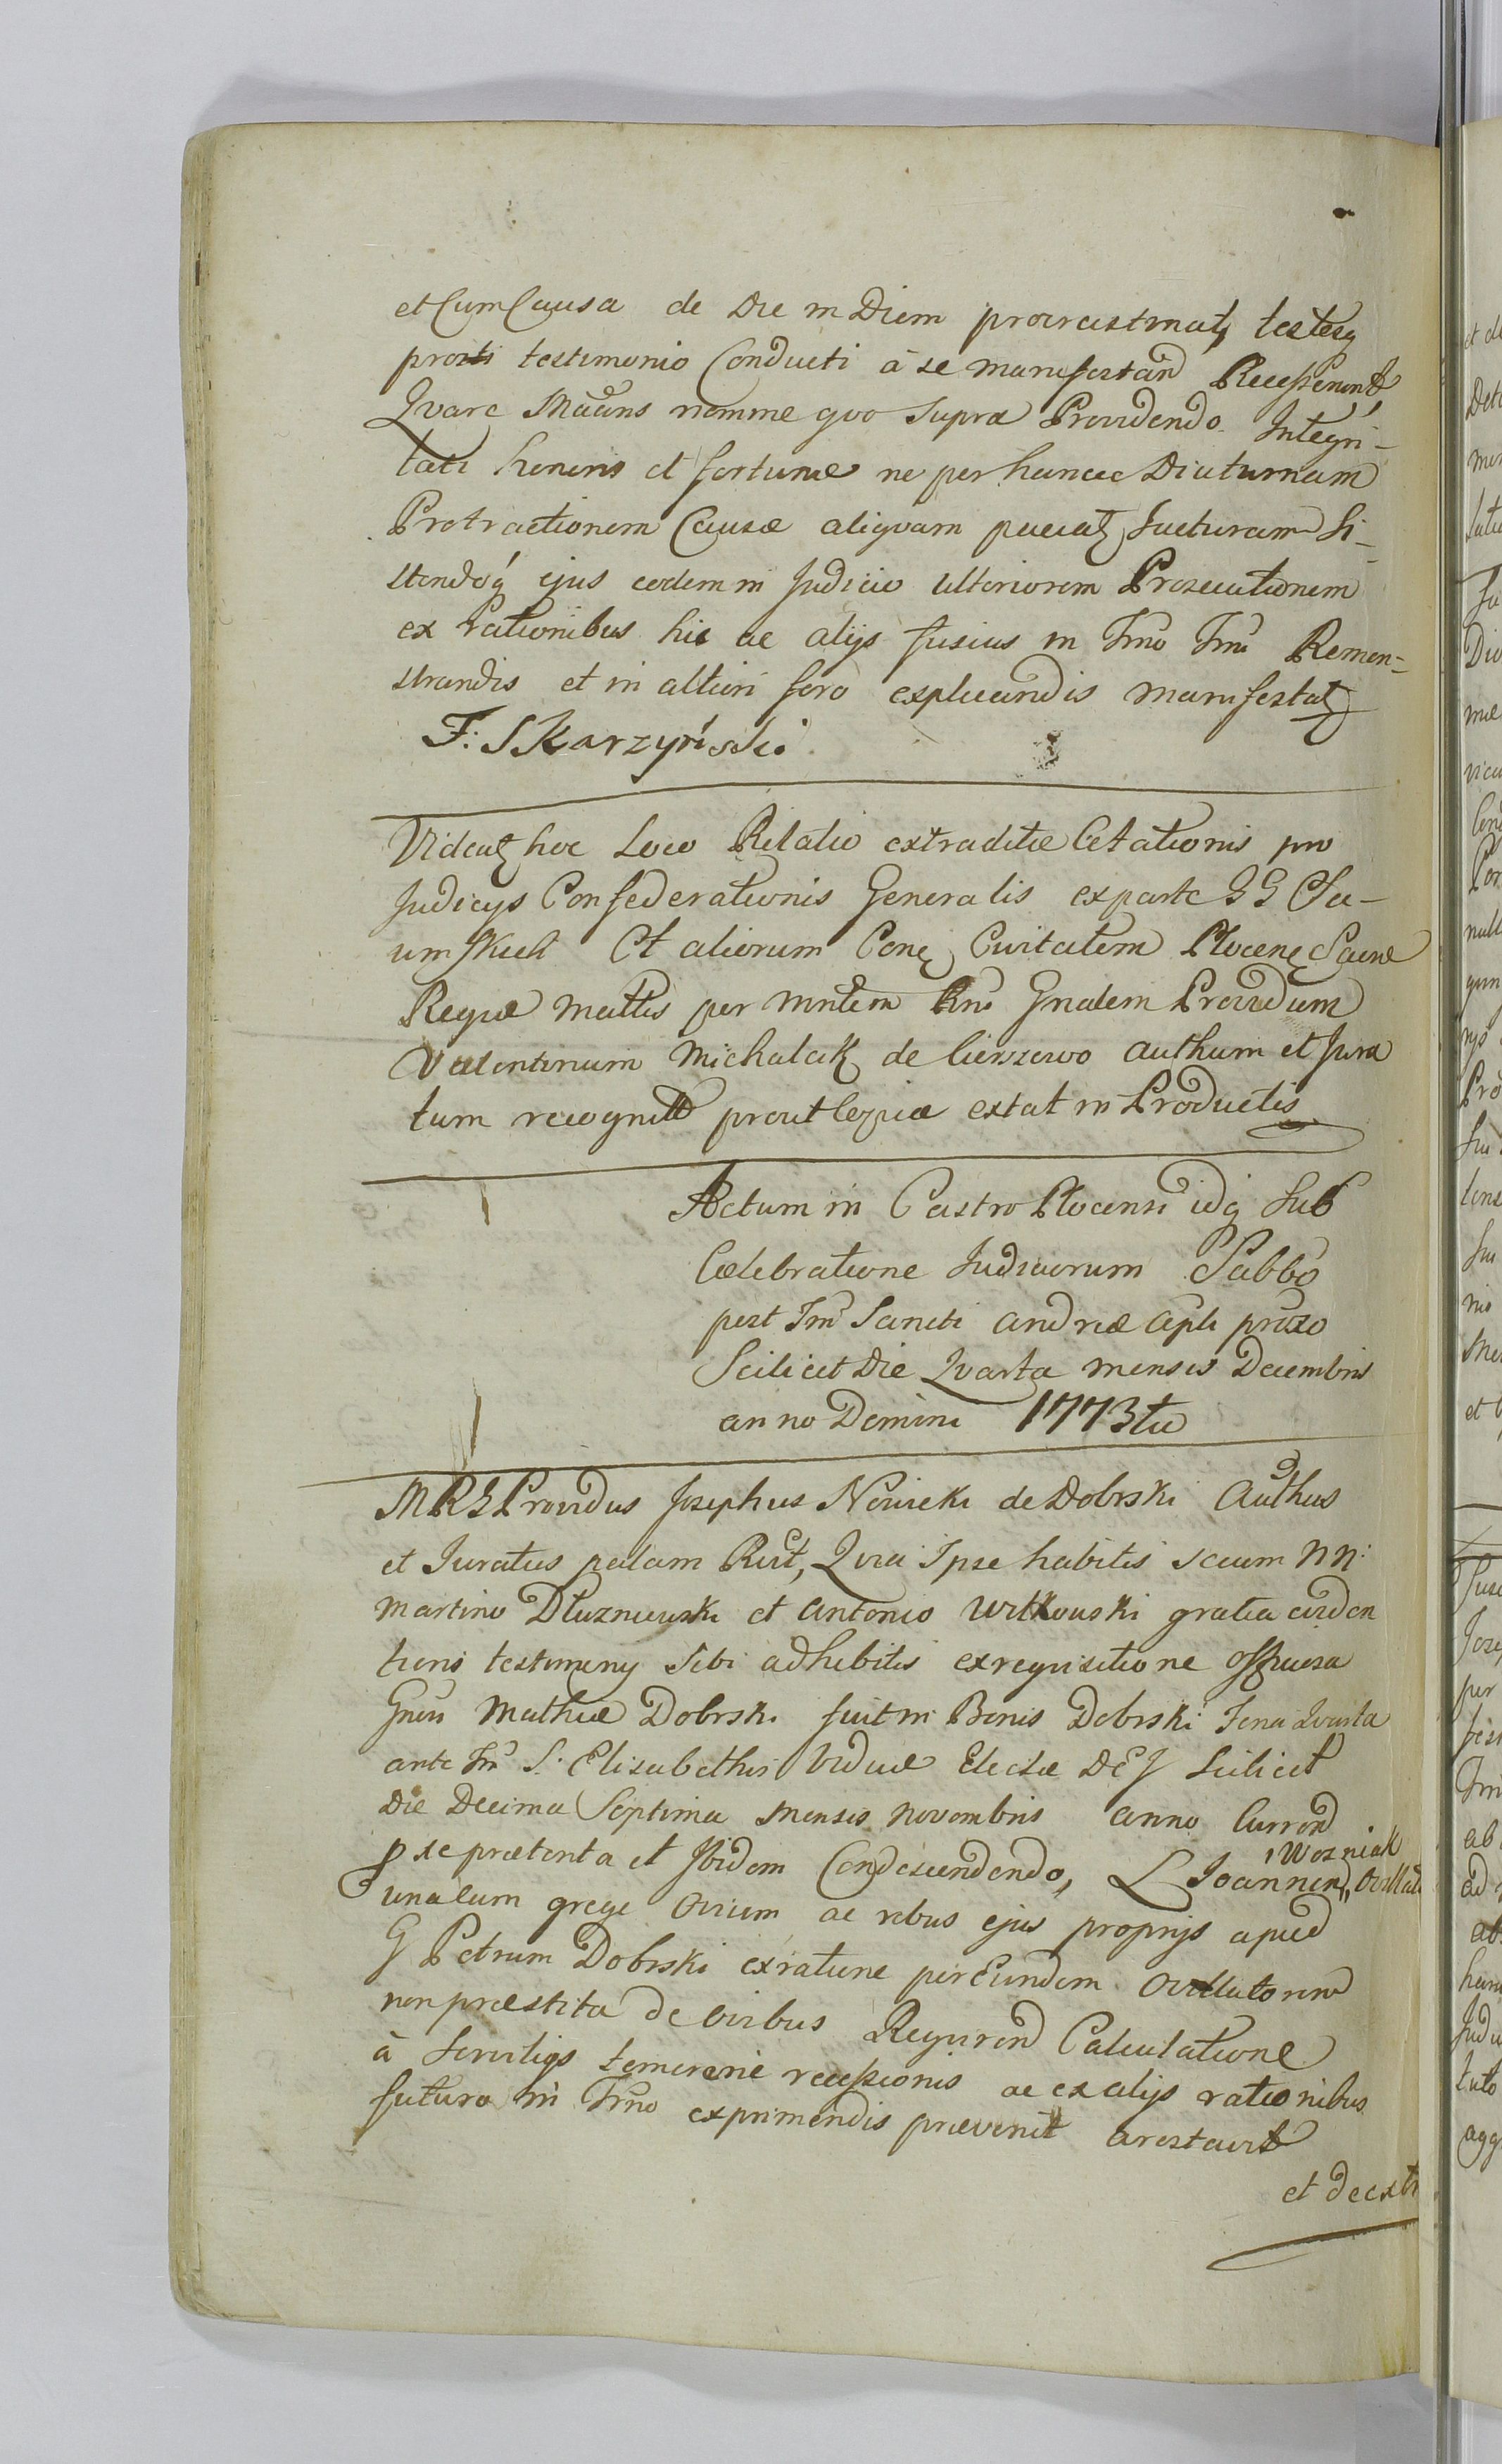 et Cum Causa de Die in Diem procrastinatꝫ testesq
testimonio Conducti à se manifestand Recesserunt
Qvare Maans nomine qvo Supra Providendo Integri-
tati honoris et fortunæ ne per hancce Diuturnam
Protractionem Causæ aliqvam patiatꝫ Jacturam Si-
stendoq ejus eodem in Judicio ulteriorem Prosecutionem
ex rationibus his ac alijs fusius in Trno Trni Remon=
strandis et in altiori foro explicandis manifestatꝫ
F: Skarzyński
Videatꝫ hoc Loco Relatio extraditæ Citationis pro
Judicijs Confederationis Generalis ex parte GG
et aliorum Conꝫ Civitatem Plocenꝫ Sacræ
Regiæ Mattis per Mntem Rni Gnalem Providum
Valentinum Michalak de Cierszewo authum et Jura
tum recognitæ prout Copia extat in Productis
Actum in Castro Plocensi idq Sub
Celebratione Judiciorum Sabbo
post Fm Sancti Andreæ Apli prox
Scilicet Die Qvarta mensis Decembris
anno Domini 1773tio
MRG Providus Josephus Nowicki de Dobrski Authus
et Juratus palam Rcit, Qvia Ipse habitis secum NN:
Martino Dłuzniewski et Antonio Witkowski gratia eviden
tioris testimony Sibi adhibitis ex reqvisitione officiosa
Gnsi Mathiæ Dobrski fuit in Bonis Dobrski Feria Qvarta
ante Fm S. Elisabethis Viduæ Electæ Dej Scilicet
Die Decima Septima mensis Novembris anno Curren
p se prætenta et Ibidem Condescendendo, L Joannem Wozniak
una cum grege Ovium ac rebus ejus proprijs apud
G Petrum Dobrski ex ratione per Eundem
non præstita de ovibus Reqviren Calculatione
à Servitijs temerariæ recessionis ac ex alijs rationibus
futuro in Trno exprimendis prævenit arestavit
et de